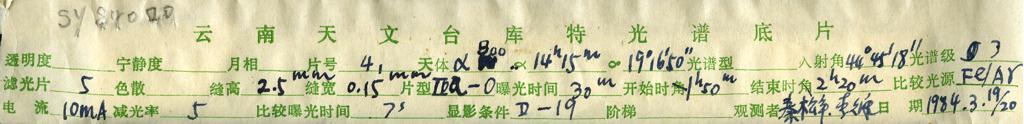 SY 840020
云南天文台库特光谱底片
透明度 宁静度 月相 片号 4, 天体 α Boo α 14ʰ15ᵐ 19°16′50″ 光谱型 入射角 44°45′18″ 光谱级 3
滤光片 5 色散 缝高 2.5mm 缝宽 0.15mm 片型 IIa-O 曝光时间 30ᵐ 开始时角 1ʰ50ᵐ 结束时角 2ʰ20ᵐ 比较光源 Fe/Ar
电流 10mA 减光率 5 比较曝光时间 7ˢ 显影条件 D-19 阶梯 观测者 日期 1984.3.19/20